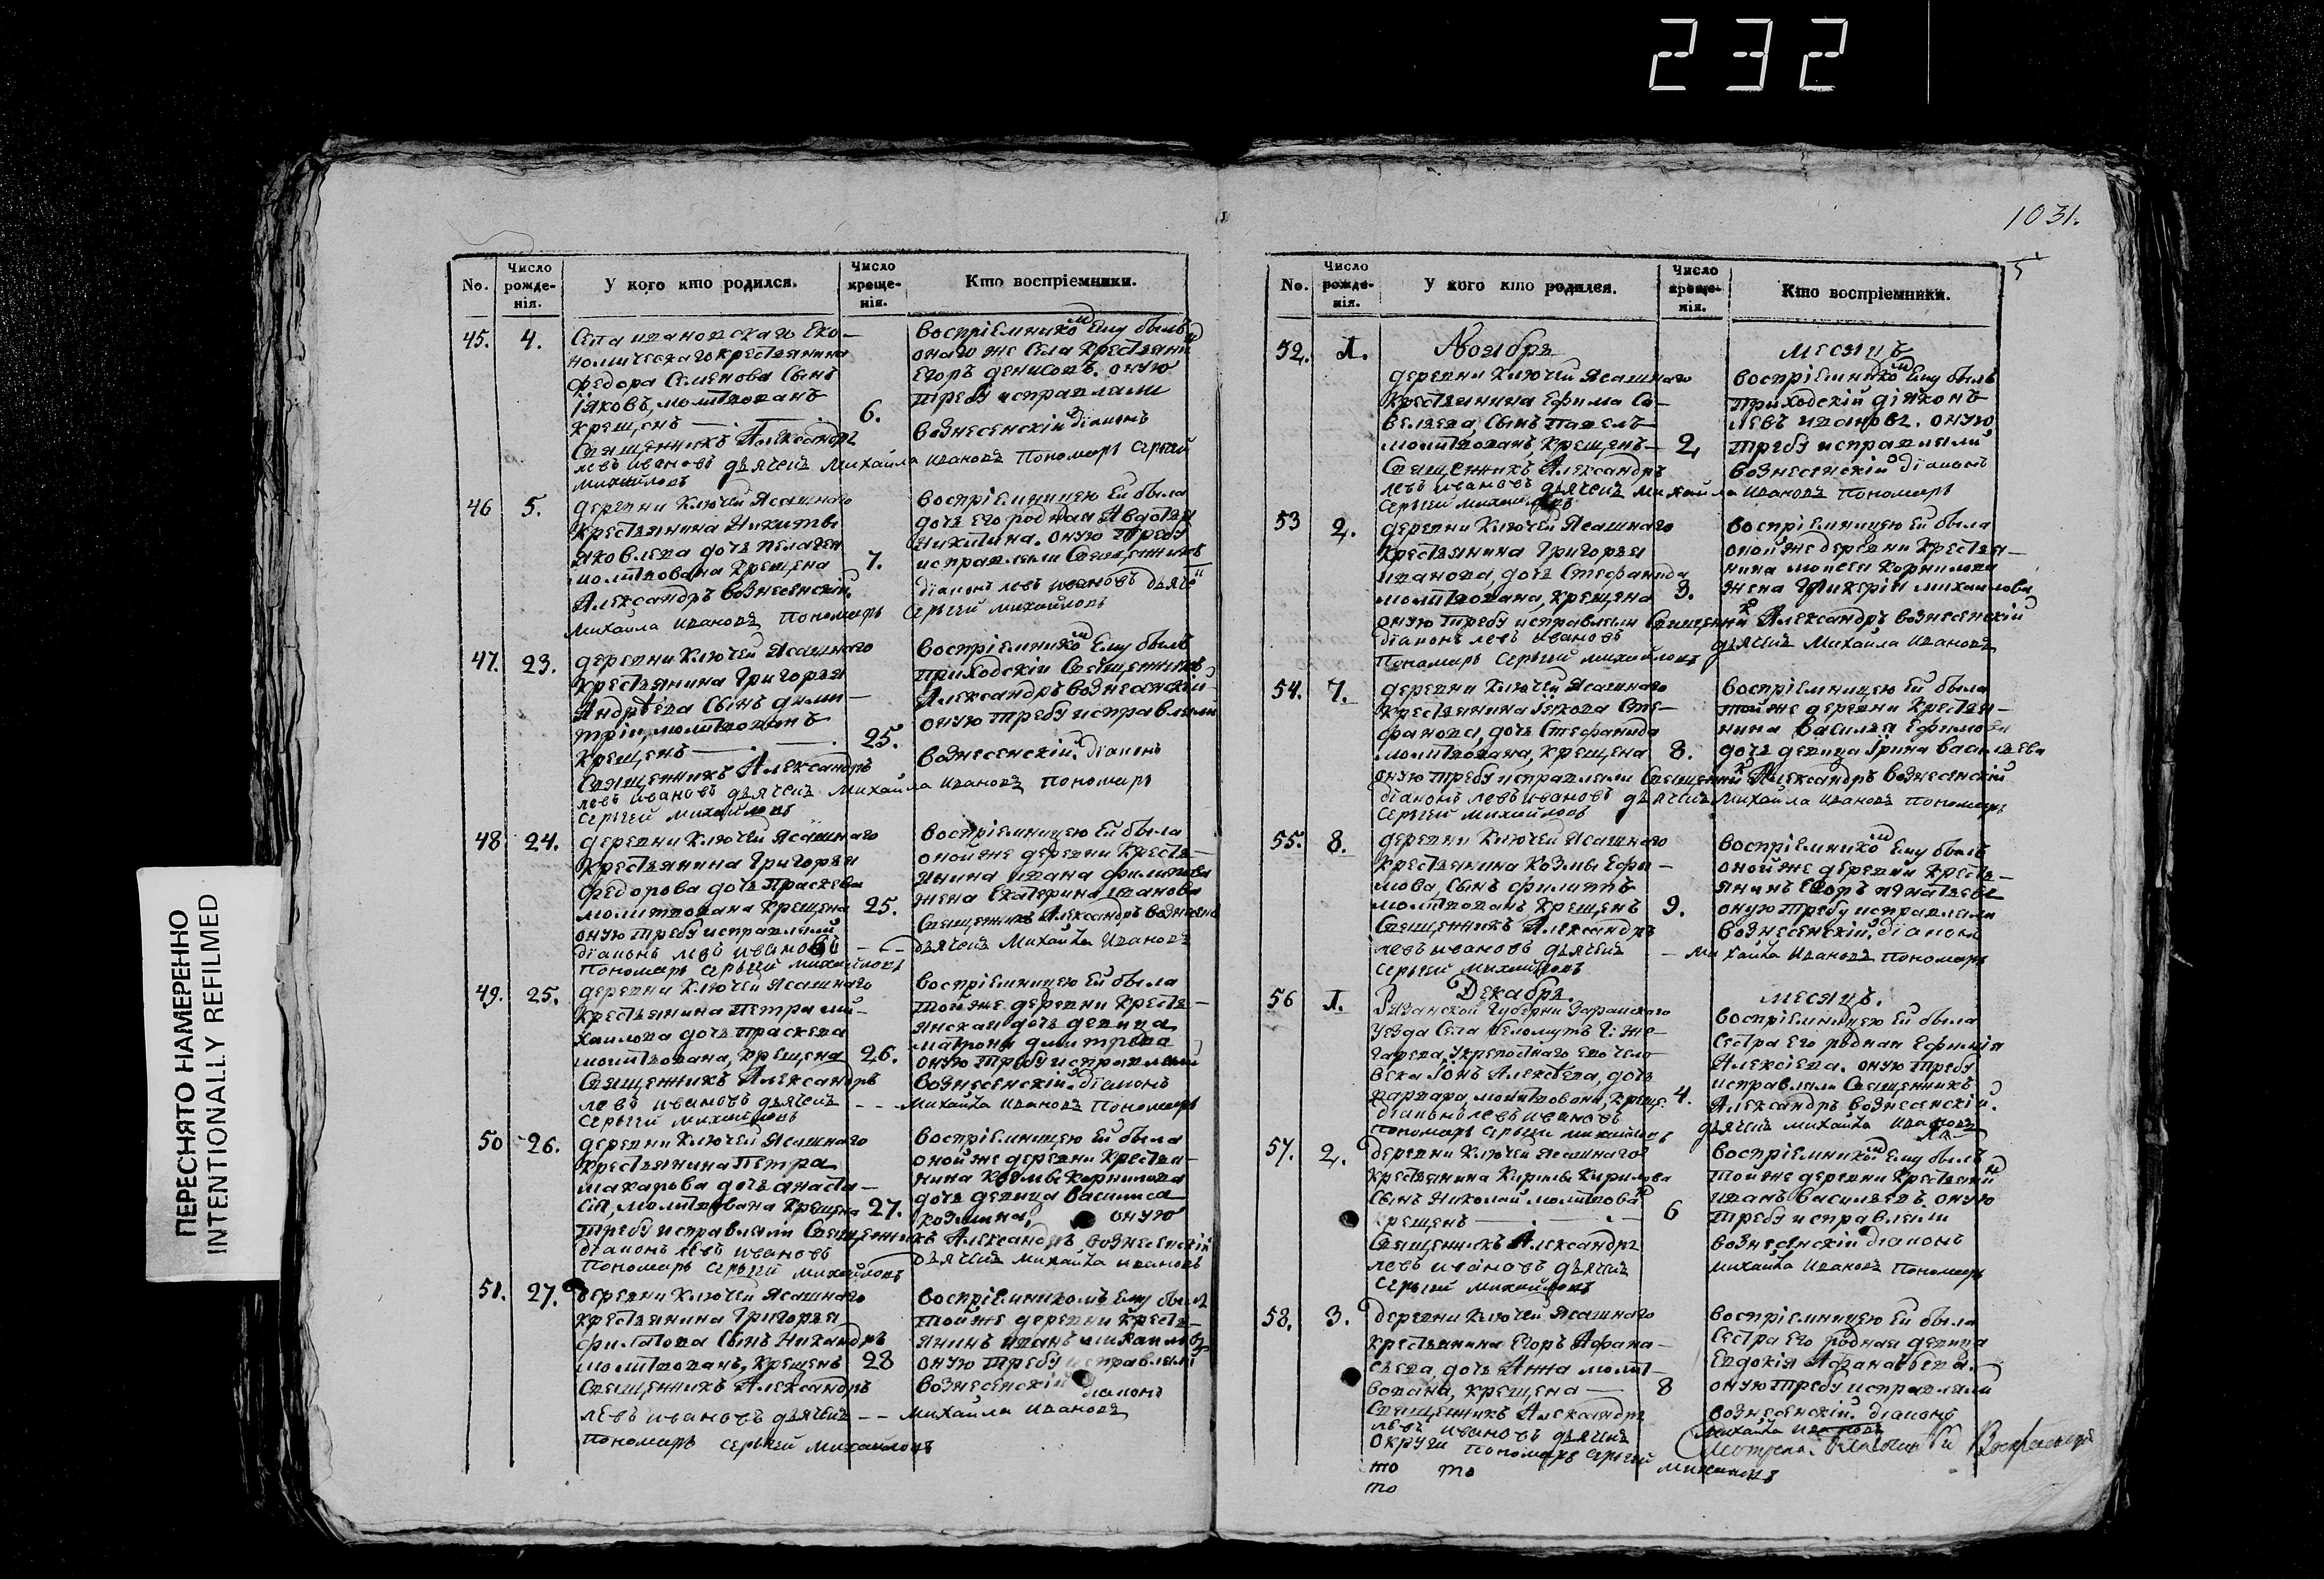 232
1031.
5
ПЕРЕСНЯТО НАМЕРЕННО
INTENTIONALLY REFILMED
No. Число рожденія. У кого кто родился. Число крещенія. Кто воспріемники.
45. 4. Села ивановскаго Еко-
номическаго крестьянина
федора Семенова Сынъ
Іяковъ, молитвованъ
крещенъ 6.
Священникъ Александръ
левъ ивановъ дьячекъ Михайла
михайловъ
воспріемникомъ Ему былъ
онаго же Села крестьянинъ
Егоръ денисовъ. оную
требу исправляли
вознесенскій діаконъ
ивановъ Пономарь Сергей
46 5. деревни Ключей Ясашнаго
крестьянина Никиты
яковлева дочь пелагея
молитвована крещена 7.
Александръ вознесенскій
Михайла ивановъ Пономарь
воспріемницею Ей была
дочь его родная Авдотья
никитина. оную требу
исправляли Священникъ
діаконъ левъ ивановъ дьячекъ
Сергей михайловъ
47. 23. деревни Ключей Ясашнаго
крестьянина Григорья
Андрѣева Сынъ дими-
трій, молитвованъ
крещенъ 25.
Священникъ Александръ
левъ ивановъ дьячекъ Михайла
Сергей михайловъ
воспріемникомъ Ему былъ
приходскій Священникъ
Александръ вознесенскій
оную требу исправляли
вознесенскій. діаконъ
ивановъ Пономарь
48 24. деревни Ключей Ясашнаго
крестьянина Григорья
федорова дочь Праскева
молитвована крещена 25.
оную требу исправляли
діаконъ левъ ивановъ
Пономарь Сергей михайловъ
воспріемницею Ей была
оной же деревни кресть-
янина ивана филипова
жена Екатерина иванова
Священникъ Александръ
дьячекъ Михайла Ивановъ
49. 25. деревни Ключей Ясашнаго
крестьянина Петра ми-
хаилова дочь праскева
молитвована, крещена 26.
Священникъ Александръ
левъ ивановъ дьячекъ
Сергей михайловъ
воспріемницею Ей была
той же деревни кресть-
янская дочь девица
матрона димитрева
оную требу исправляли
вознесенскій. діаконъ
Михайла ивановъ Пономарь
50 26. деревни Ключей Ясашнаго
крестьянина Петра
макарова дочь анаста-
сія, молитвована крещена 27.
требу исправляли Священникъ Александръ вознесенскій
діаконъ левъ ивановъ
Пономарь Сергей михайловъ
воспріемницею Ей была
оной же деревни крестья-
нина козмы корнилова
дочь девица василиса
козмина, оную
дьячекъ михайла ивановъ
51. 27. деревни Ключей Ясашнаго
крестьянина Григорья
филатова Сынъ Никандръ
молитвованъ, крещенъ 28
Священникъ Александръ
левъ ивановъ дьячекъ
Пономарь Сергей Михайловъ
воспріемникомъ Ему былъ
той же деревни кресть-
янинъ иванъ михаиловъ
оную требу исправляли
вознесенскій діаконъ
михайла ивановъ
No. Число рожденія. У кого кто родился. Число крещенія. Кто воспріемники.
Ноября месяцъ
52. 1. деревни Ключей Ясашнаго
крестьянина Ефима Са-
велева, Сынъ павелъ
молитвованъ, крещенъ 2,
Священникъ Александръ
левъ ивановъ дьячекъ михайла
Сергей михайловъ
воспріемникомъ Ему былъ
приходскій діяконъ
левъ ивановъ. оную
требу исправляли
вознесенскій діаконъ
ивановъ Пономарь
53 2. деревни Ключей Ясашнаго
крестьянина Григорья
иванова, дочь Стефанида
молитвована, крещена 3.
оную требу исправляли Священникъ Александръ вознесенскій
діаконъ левъ ивановъ
Пономарь Сергей михайловъ
воспріемницею Ей была
оной же деревни крестья-
нина моисея корнилова
жена Гликерія михаилова
дьячекъ Михайла Ивановъ
54. 7. деревни Ключей Ясашнаго
крестьянина Іякова Сте-
фанова, дочь Стефанида
молитвована, крещена 8.
оную требу исправляли Священникъ Александръ вознесенскій
діаконъ левъ ивановъ дьячекъ Михайла Ивановъ Пономарь
Сергей михайловъ
воспріемницею Ей была
той же деревни крестья-
нина василья Ефимова
дочь девица Ірина васильева
55. 8. деревни Ключей Ясашнаго
крестьянина Козмы Ефи-
мова, Сынъ филиппъ
молитвованъ крещенъ 9.
Священникъ Александръ
левъ ивановъ дьячекъ
Сергей михайловъ
воспріемникомъ Ему былъ
оной же деревни кресть-
янинъ Егоръ игнатьевъ
оную требу исправляли
вознесенскій. діаконъ
Михайла ивановъ Пономарь
Декабря. месяцъ.
56 1. Рязанской Губерни Зарайскаго
уезда Села
века Іонъ Алексѣева, дочь
варвара, молитвована, креще. 4.
діаконъ левъ ивановъ
Пономарь Сергей михайловъ
воспріемницею Ей была
сестра Его родная Ефимія
Алексіева. оную требу
исправляли Священникъ
Александръ вознесенскій.
дьячекъ михайла ивановъ
57. 2. деревни Ключей Ясашнаго
крестьянина Кирилы Кирилова
Сынъ Николай молитвованъ
крещенъ 6
Священникъ Александръ
левъ ивановъ дьячекъ
Сергей михайловъ
воспріемникомъ Ему былъ
той же деревни крестьянинъ
иванъ васильевъ оную
требу исправляли
вознесенскій діаконъ
михайла Ивановъ Пономарь
58. 3. деревни Ключей Ясашнаго
крестьянина Егоръ Афана-
сьева, дочь Анна молит-
вована, крещена 8
Священникъ Александръ
левъ ивановъ дьячекъ
округи Пономарь Сергей михайловъ
то то
то
воспріемницею Ей была
Сестра Его родная девица
Евдокія Афанасьева.
оную требу исправляли
вознесенскій. діаконъ
Михайла ивановъ